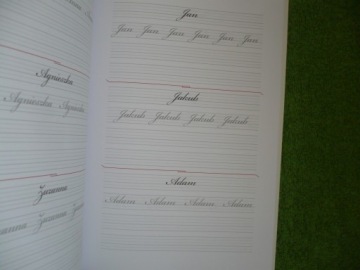 Agnieszka
Agnieszka Agnieszka
Zuzanna
Zuzanna
Jan
Jan Jan Jan Jan Jan Jan
Jakub
Jakub Jakub Jakub Jakub
Adam
Adam Adam Adam Adam